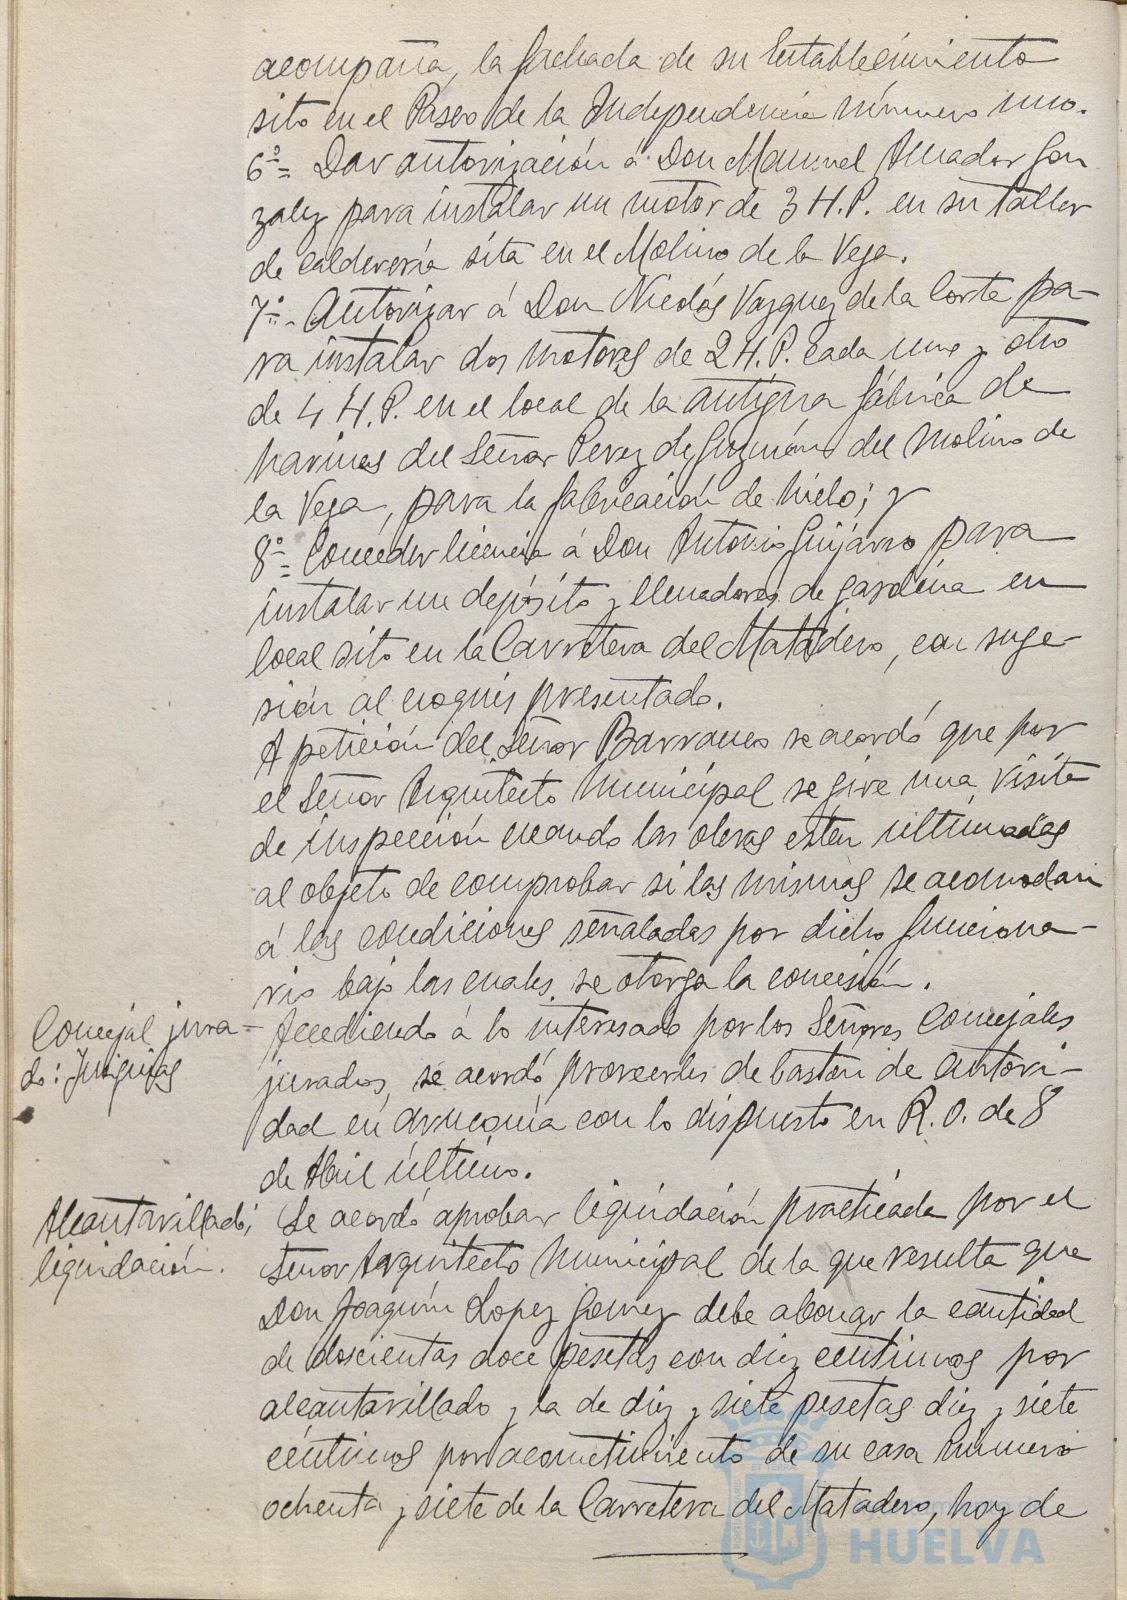 acompaña, la fachada de su Establecimiento
sito en el Paseo de la Independencia número uno.
6º= Dar autorización á Don Manuel Amador Gon
zalez para instalar un motor de 3 H.P. en su taller
de calderería sita en el Molino de la Vega.
7º- Autorizar á Don Nicolás Vazquez de la Corte pa-
ra instalar dos motores de 2 H.P. cada uno y otro
de 4 H.P. en el local de la antigua fábrica de
harinas del Señor Perez de Guzmán del Molino de
la Vega, para la fabricación de hielo; y
8º= Conceder licencia á Don Antonio Guijarro para
instalar un depósito y llenadores de gasolina en
local sito en la Carretera del Matadero, con suge-
sión al croquis presentado.
A petición del Señor Barranco se acordó que por
el Señor Arquitecto Municipal se gire una visita
de inspección cuando las obras estén ultimadas
al objeto de comprobar si las mismas se acomodan
á las condiciones señaladas por dicho funciona-
rio bajo las cuales se otorga la concesión.
Concejal jura-
do: Insignias
Accediendo á lo interesado por los Señores Concejales
jurados, se acordó proveerles de bastón de autori-
dad en armonía con lo dispuesto en R. O. de 8
de Abril último.
Alcantarillado;
liquidación.
Se acordó aprobar liquidación practicada por el
Señor Arquitecto Municipal de la que resulta que
Don Joaquín Lopez Gomez debe abonar la cantidad
de doscientas doce pesetas con diez centimos por
alcantarillado y la de diez y siete pesetas diez y siete
céntimos por acometimiento de su casa número
ochenta y siete de la Carretera del Matadero, hoy de
HUELVA